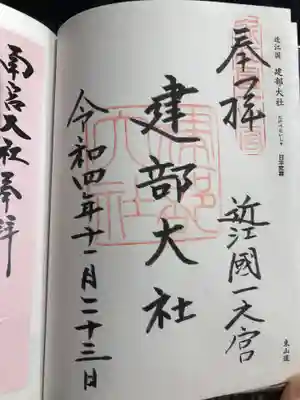 近江国 建部大社
奉拝
近江國一大宮
建部大社
令和四年十一月二十三日
東山道
南宮大社奉拝